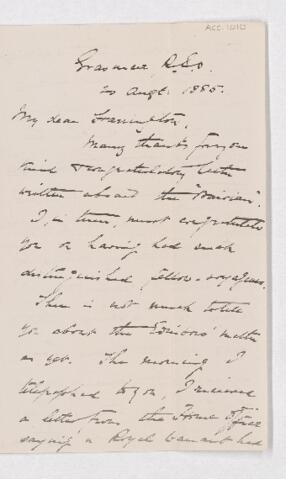 ACC. 1010
Grasmere, R.S.O.
20 Augt. 1885.
My dear
Many thanks for your
kind & congratulatory letter
written aboard the
I, in turn, must congratulate
you on having had such
distinguished fellow-voyagers.
There is not much to tell
you about the matter
as yet. The morning I
telegraphed to you, I received
a letter from the Home Office
saying a Royal Warrant had